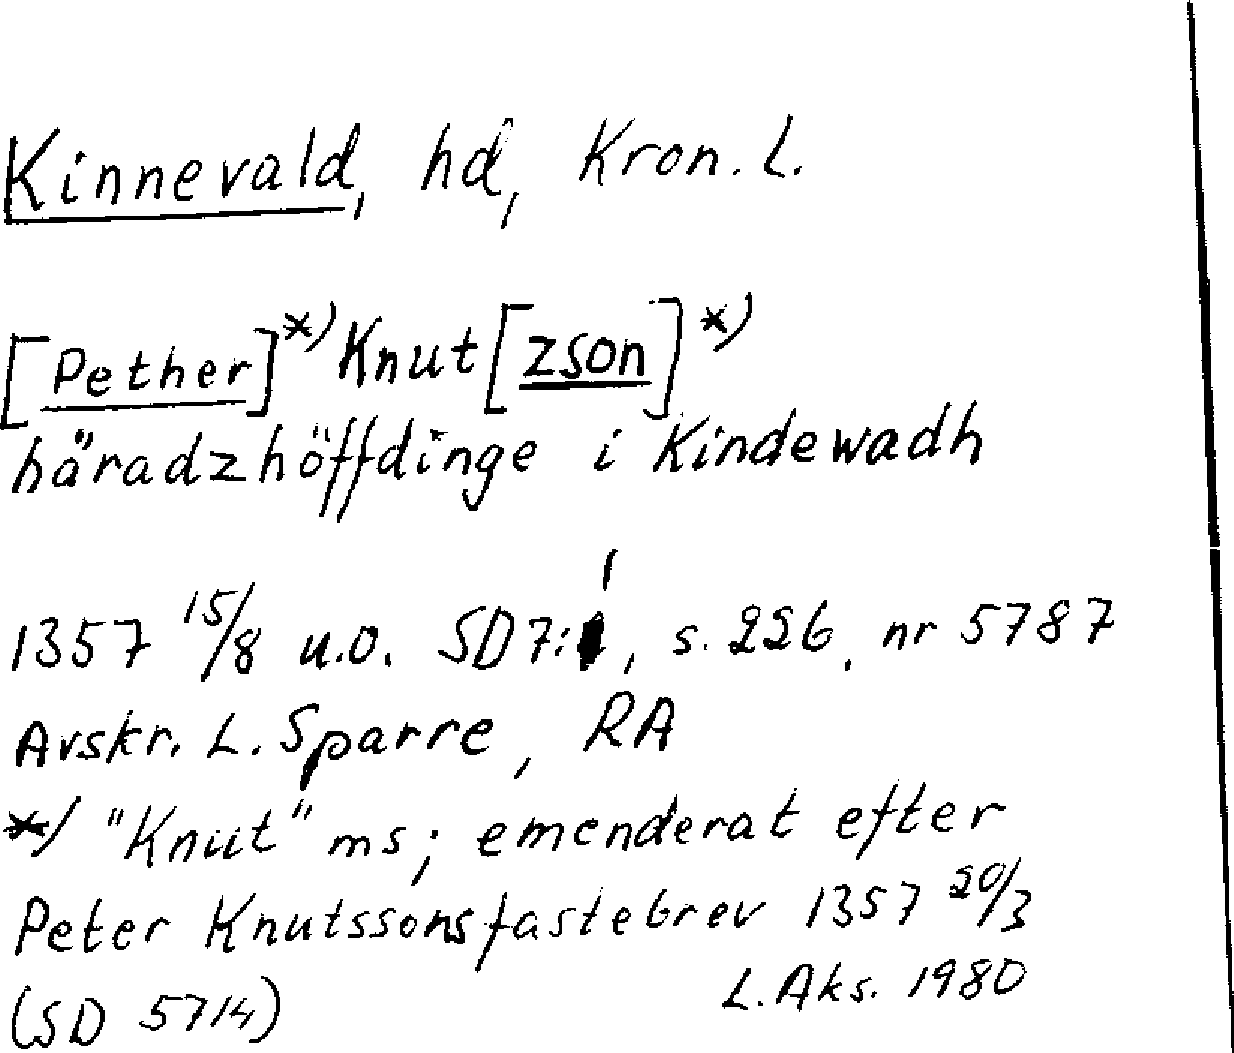 Kinnevald, hd, Kron. L.
[Pether]*) Knut[zson]*)
häradzhöffdinge i Kindewadh
1357 15/8 u.o. SD 7:1, s. 226, nr 5787
Avskr. L. Sparre, RA
*) "Knut" ms; emenderat efter
Peter Knutssons fastebrev 1357 20/3
(SD 5714)
L. Aks. 1980